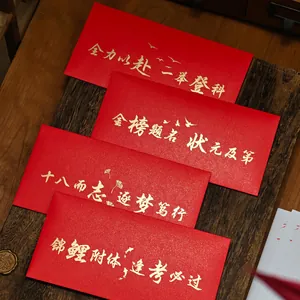 全力以赴 一举登科
金榜题名 状元及第
十八而志 逐梦笃行
錦鲤附体 逢考必过